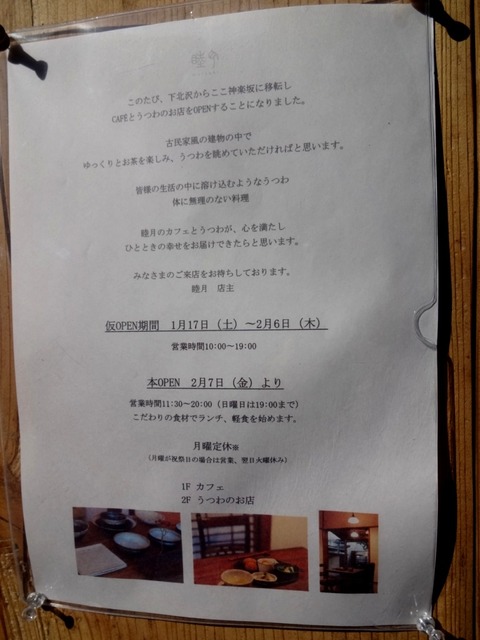 このたび、下北沢からここ神楽坂に移転し
CAFEとうつわのお店をOPENすることになりました。
古民家風の建物の中で
ゆっくりとお茶を楽しみ、うつわを眺めていただければと思います。
皆様の生活の中に溶け込むようなうつわ
体に無理のない料理
睦月のカフェとうつわが、心を満たし
ひとときの幸せをお届けできたらと思います。
みなさまのご来店をお待ちしております。
睦月 店主
仮OPEN期間 1月17日（土）～2月6日（木）
営業時間10:00～19:00
本OPEN 2月7日（金）より
営業時間11:30～20:00（日曜日は19:00まで）
こだわりの食材でランチ、軽食を始めます。
月曜定休※
（月曜が祝祭日の場合は営業、翌日火曜休み）
1F カフェ
2F うつわのお店